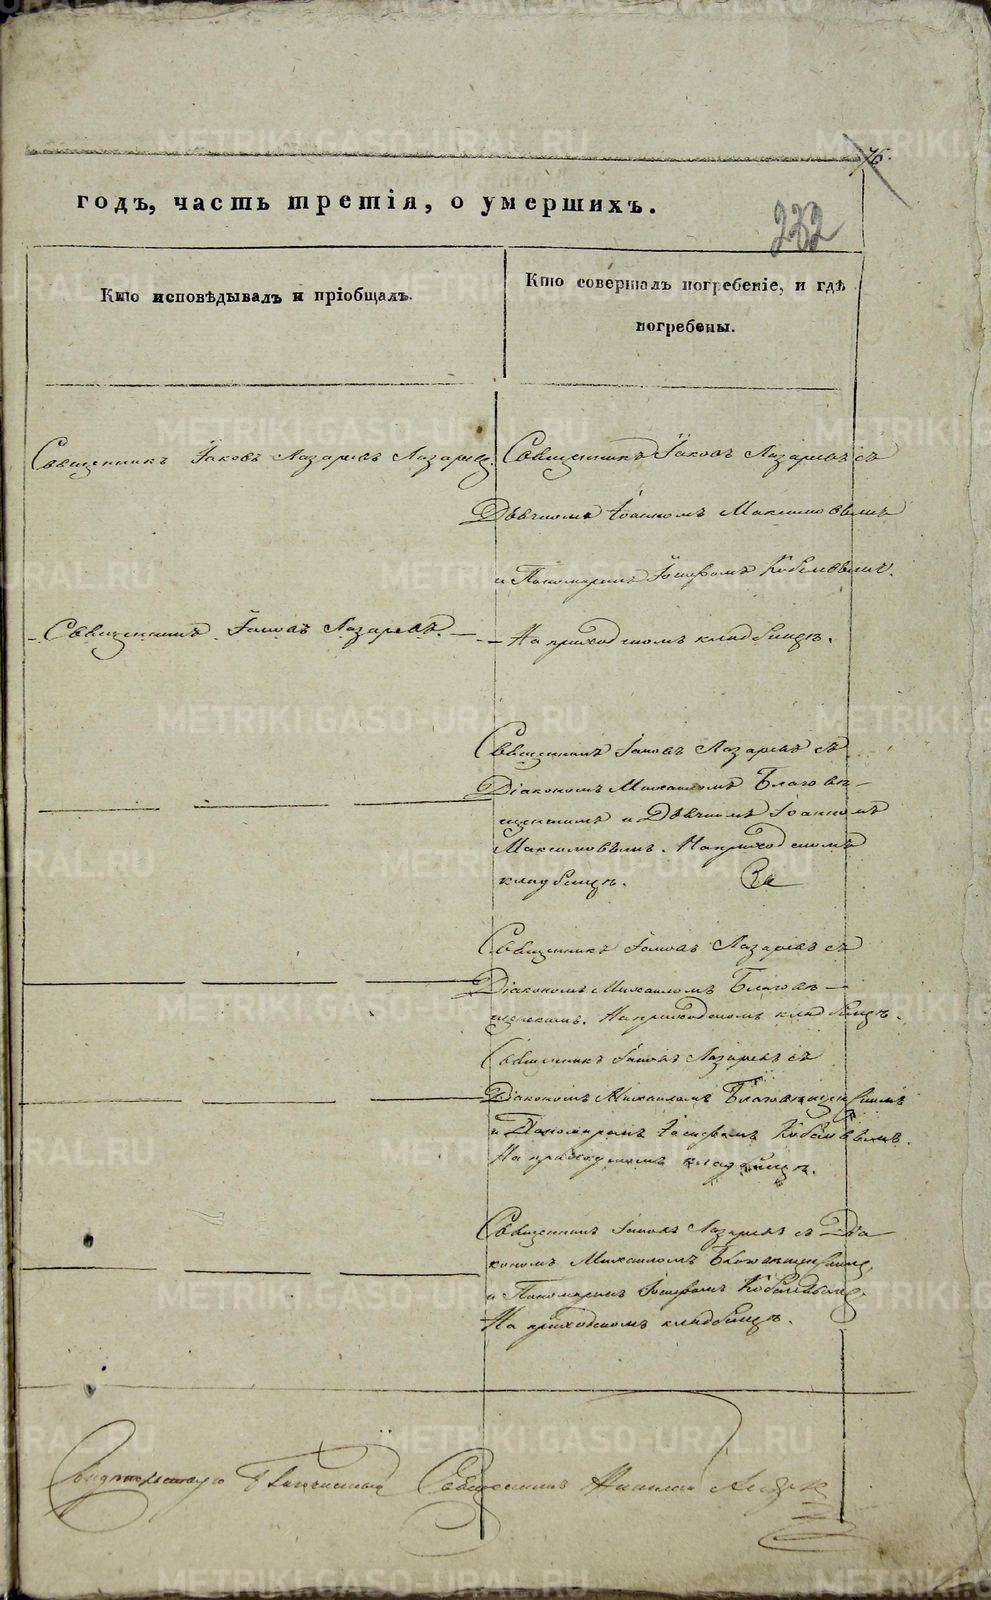 76.
годъ, часть третія, о умершихъ.
232
Кто исповѣдывалъ и пріобщалъ.
Кто совершалъ погребеніе, и гдѣ
погребены.
Священникъ Іаковъ Лазаревъ Лазаревъ.
Священникъ Іаковъ Лазаревъ съ
Дьячкомъ Іоанномъ Максимовымъ
и Пономаремъ Іосифомъ Кобелевымъ.
Священникъ Іаковъ Лазаревъ.
На приходскомъ кладбищѣ.
Священникъ Іаковъ Лазаревъ съ
Діакономъ Михаиломъ Благовѣ-
щенскимъ и Дьячкомъ Іоанномъ
Максимовымъ. На приходскомъ
кладбищѣ.
Священникъ Іаковъ Лазаревъ съ
Діакономъ Михаиломъ Благовѣ-
щенскимъ. На приходскомъ кладбищѣ.
Священникъ Іаковъ Лазаревъ съ
Діакономъ Михаиломъ Благовѣщенскимъ
и Пономаремъ Іосифомъ Кобелевымъ.
На приходскомъ кладбищѣ.
Священникъ Іаковъ Лазаревъ съ Діа-
кономъ Михаиломъ Благовѣщенскимъ,
и Пономаремъ Іосифомъ Кобелевымъ.
На приходскомъ кладбищѣ.
Свидѣтельствую Священникъ
METRIKI.GASO-URAL.RU